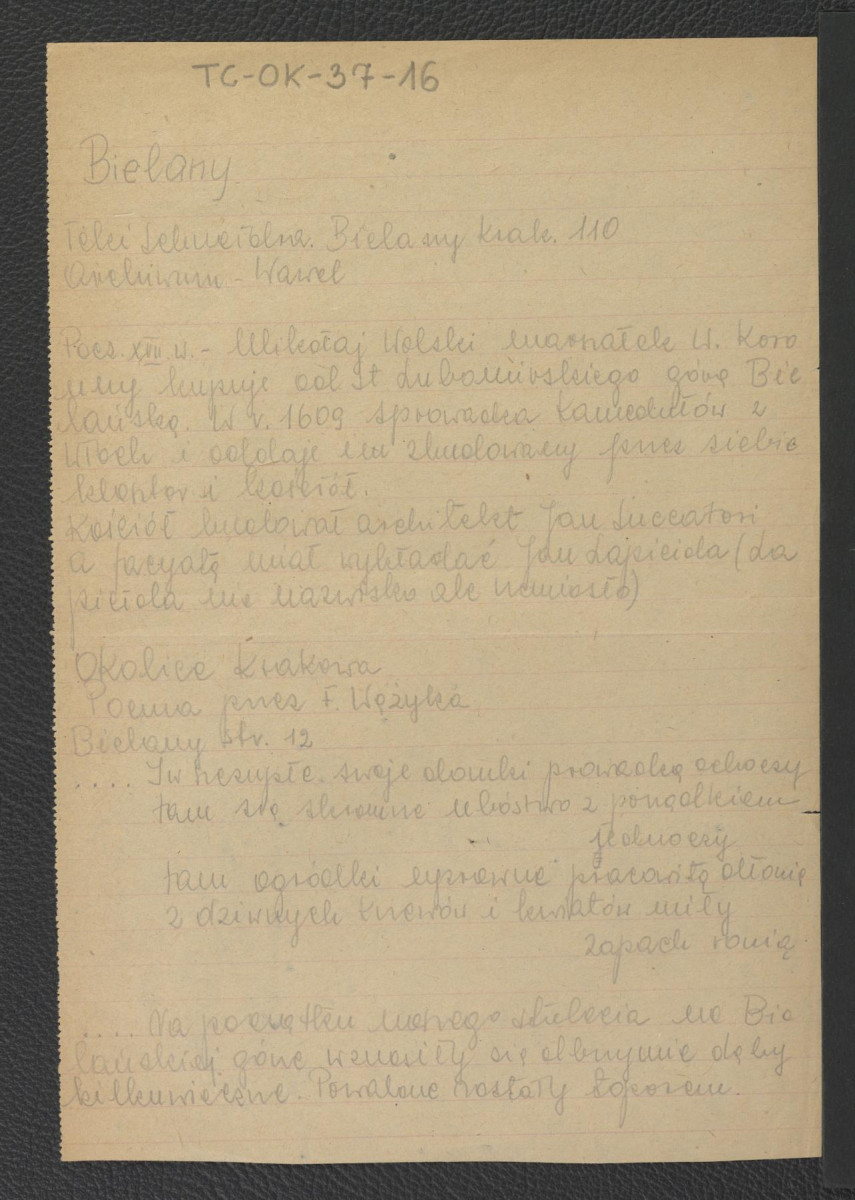 TC-OK-37-16
Bielany
Teki Schneidra. Bielany Krak. 110
Archiwum - Wawel
Pocz. XVII w. - Mikołaj Wolski marszałek W. Koro
nny kupuje od St Lubomirskiego górę Bie
lańską. W r. 1609 sprowadza Kamedułów z
Włoch i oddaje im zbudowany przez siebie
klasztor i kościół.
Kościół budował architekt Jan Succatori
a facyatę miał wykładać Jan Lapicida (La
picida nie nazwisko ale rzemiosło)
Okolice Krakowa
Poema przez F. Wężyka
Bielany str. 12
..... Tu szczupłe swoje domki prowadzą ochoczy
tam się skromne ubóstwo z porządkiem
jednoczy
tam ogródki uprawne pracowitą dłonią
z dziwnych krzewów i kwiatów miły
zapach ronią
..... Na początku naszego stulecia na Bie
lańskiej górze wznosiły się olbrzymie dęby
kilkuwieczne. Powalone zostały toporem.